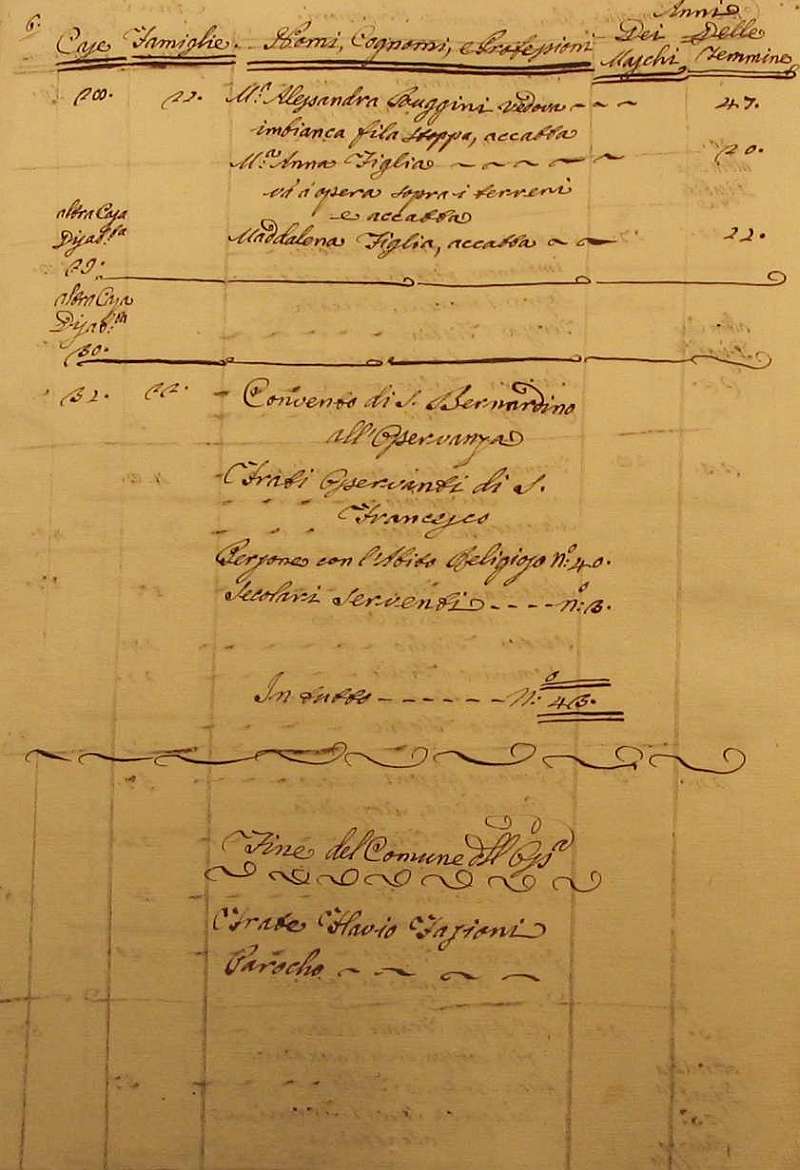 6.
Anni
Case Famiglie. Nomi, Cognomi, e Professioni Dei Delle
Maschi Femmine
28. 22. M.ª Alessandra Buggini vedova 47.
imbianca fila stoppa, accatta
M.ª Anna Figlia 20.
và à opera sopra i terreni
e accatta
altra Casa
Disab.ta Maddalena Figlia, accatta 22.
29.
altra Casa
Disab.ta
30.
32. 22. Convento di S. Bernardino
all'Osservanza
Frati Osservanti di S.
Francesco
Persone con l'Abito Religioso Nº: 40.
Secolari Serventi ---- nº: 3.
In tutto ------ Nº: 43.
Fine del Comune dell' Oss.ª
Frate Flavio Fasioni
Parocho